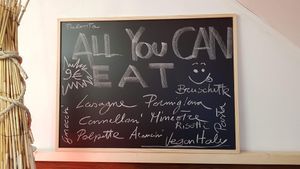 Polenta
ALL YOU CAN
EAT
9€
Bruschette
Lasagne Parmigiana
Cannelloni Minestre
Risotti
Polpette Arancini
Gnocchi
Pasta